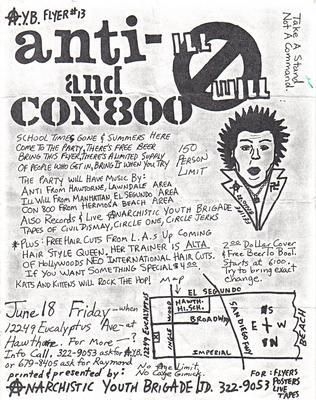 Ⓐ.Y.B. FLYER #13
anti-
ILL
WILL
and
CON800
Take A Stand
Not A Command.
SCHOOL TIMES GONE & SUMMERS HERE
COME TO THE PARTY, THERE'S FREE BEER
BRING THIS FLYER, THERE'S A LIMITED SUPPLY
OF PEOPLE WHO GET IN, BRING IT WHEN YOU TRY
150
PERSON
LIMIT
THE PARTY WILL HAVE MUSIC BY:
ANTI FROM HAWTORNE, LAWNDALE AREA
ILL WILL FROM MANHATTAN, EL SEGUNDO AREA
CON 800 FROM HERMOSA BEACH AREA
Also Records & Live Ⓐnarchistic Youth Brigade
TAPES OF CIVIL DISMAY, CIRCLE ONE, CIRCLE JERKS
*PLUS: FREE HAIR CUTS FROM L.A.s UP COMING
HAIR STYLE QUEEN, HER TRAINER IS ALTA
OF HOLLYWOODS NEO INTERNATIONAL HAIR CUTS.
IF YOU WANT SOMETHING SPECIAL $4.00
KATS AND KITTENS WILL ROCK THE HOP!
2.00 Dollar Cover
& Free Beer to Bool.
Starts at 6:00.
Try to bring exact
change.
MAP
June 18 Friday — when
12249 Eucalyptus Ave — at
Hawthorne. For More — ?
Info Call. 322-9053 ask for Ⓐ.Y.B.
or 679-8405 ask for Raymond
EL SEGUNDO
HAWTH.
HI. SCH.
BROADWAY
IMPERIAL
12249 EUCALYPTUS
INGLEWOOD
SAN DIEGO FWY
N S
E W
BEACH
printed & presented by:
No Age Limit.
No Cage Gimick.
FOR: FLYERS
POSTERS
LIVE
TAPES
ⒶNARCHISTIC YOUTH BRIGADE LTD. 322-9053